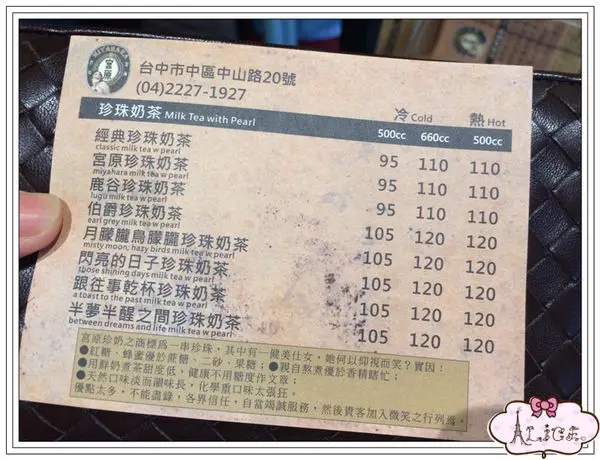 MIYAHARA
宮原
台中市中區中山路20號
(04)2227-1927
珍珠奶茶 Milk Tea with Pearl 冷 Cold 熱 Hot
500cc 660cc 500cc
經典珍珠奶茶 95 110 110
classic milk tea w pearl
宮原珍珠奶茶 95 110 110
miyahara milk tea w pearl
鹿谷珍珠奶茶 95 110 110
lugu milk tea w pearl
伯爵珍珠奶茶 95 110 110
earl grey milk tea w pearl
月朦朧鳥朦朧珍珠奶茶 105 120 120
misty moon, hazy birds milk tea w pearl
閃亮的日子珍珠奶茶 105 120 120
those shining days milk tea w pearl
跟往事乾杯珍珠奶茶 105 120 120
a toast to the past milk tea w pearl
半夢半醒之間珍珠奶茶 105 120 120
between dreams and life milk tea w pearl
宮原珍奶之商標爲一串珍珠，其中有一健美仕女，她何以仰視而笑？實因：
●紅糖、蜂蜜優於蔗糖、二砂、果糖；●親自熬煮優於香精瞎忙；
●用鮮奶煮茶甜度低，健康不用糖度作文章；
●天然口味淡而韻味長，化學重口味太張狂。
優點太多，不能盡錄，各界信任，自當竭誠服務，然後貴客加入微笑之行列焉。
ALICE